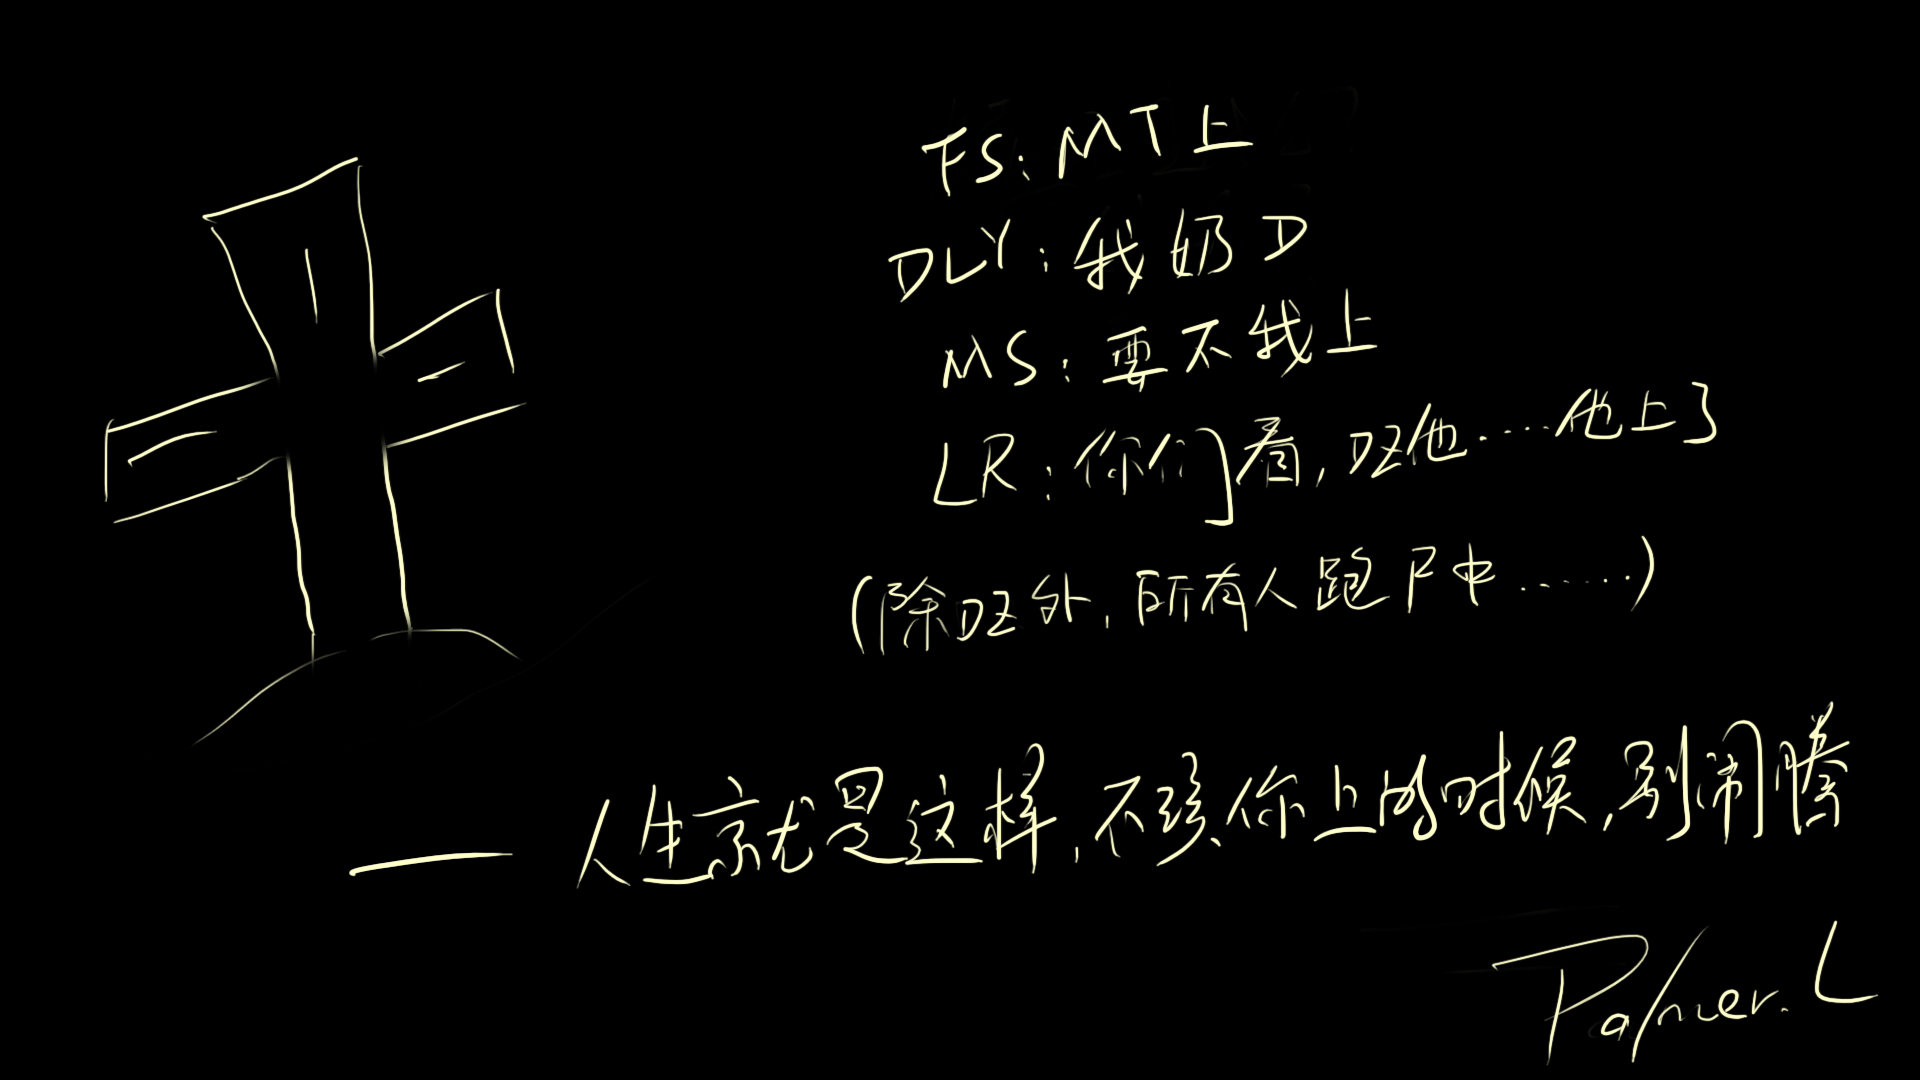 FS:MT上
DLY:我奶D
MS:要不我上
LR:你们看,DZ他……他上了
(除DZ外,所有人跑尸中……)
——人生就是这样,不该你上的时候,别闹腾
Palmer.L